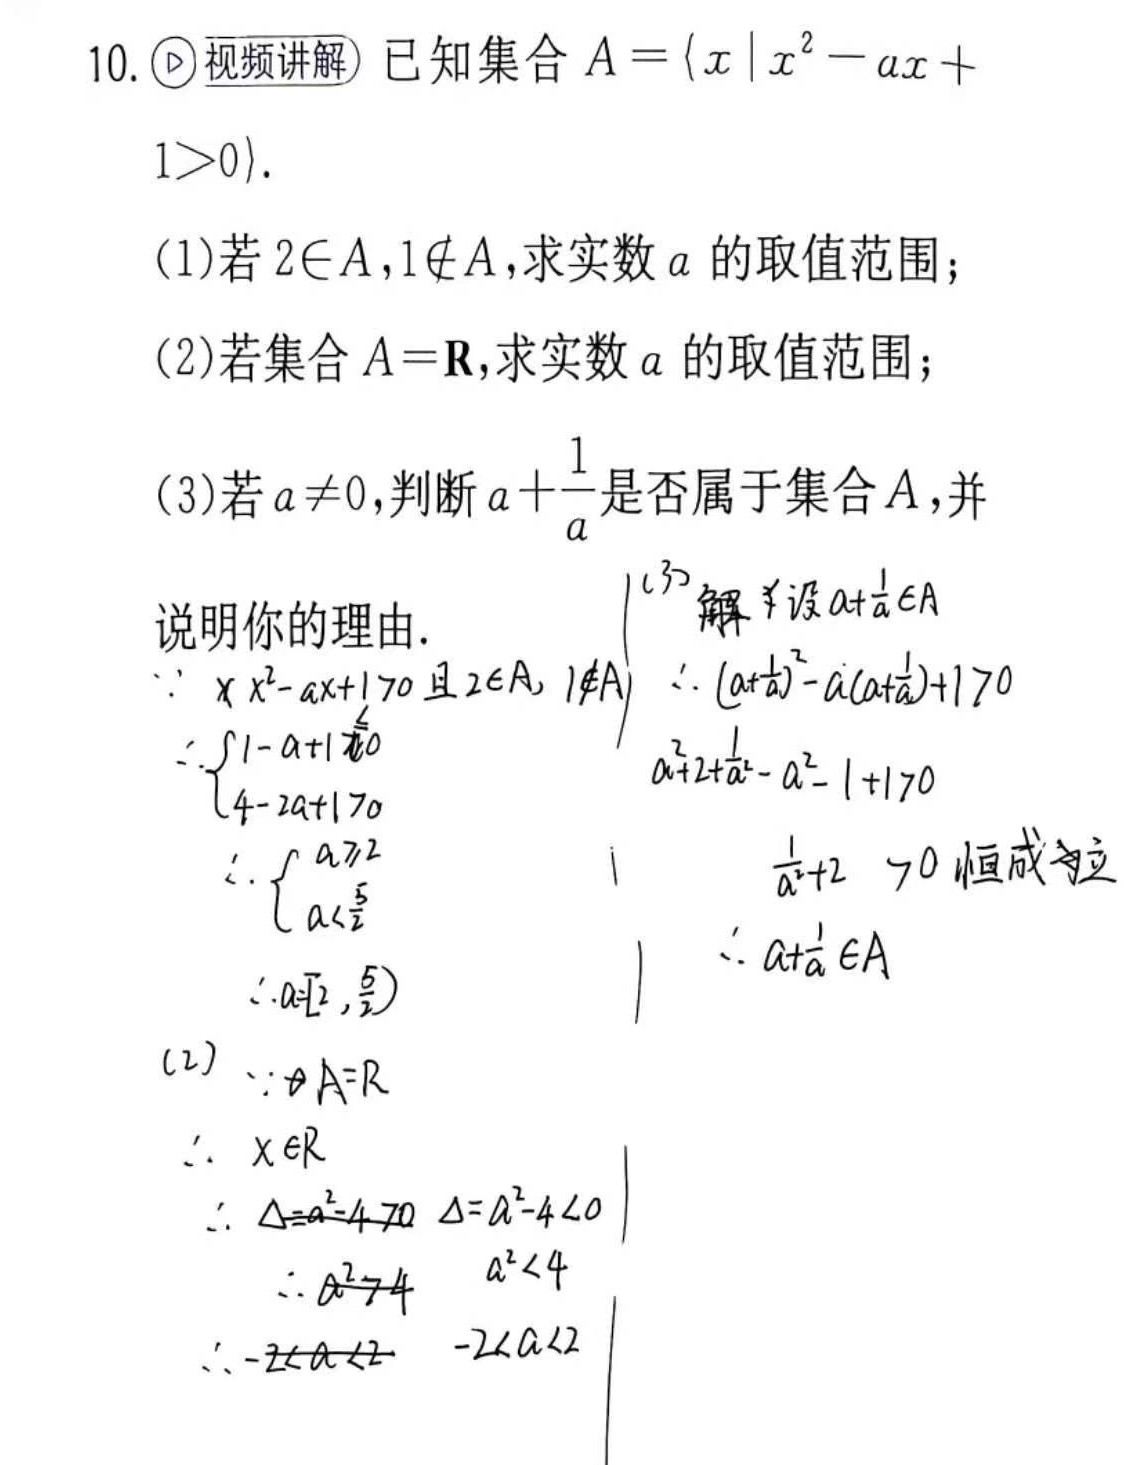 10. 视频讲解 已知集合 A={x|x²-ax+
1>0}.
(1)若 2∈A,1∉A,求实数 a 的取值范围;
(2)若集合 A=R,求实数 a 的取值范围;
(3)若 a≠0,判断 a+1/a 是否属于集合 A,并
说明你的理由.
∵ x²-ax+1>0 且 2∈A, 1∉A
∴ { 1-a+1≤0
4-2a+1>0
∴ { a≥2
a<5/2
∴ a=[2, 5/2)
(2) ∵ A=R
∴ x∈R
∴ Δ=a²-4>0 Δ=a²-4<0
∴ a²>4 a²<4
∴ -2<a<2 -2<a<2
(3) 解 设 a+1/a∈A
∴ (a+1/a)²-a(a+1/a)+1>0
a²+2+1/a²-a²-1+1>0
1/a²+2 >0 恒成立
∴ a+1/a∈A